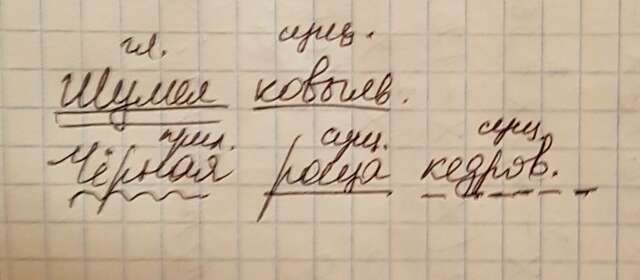 гл. сущ.
Шумел ковыль.
прил. сущ. сущ.
Чёрная роща кедров.